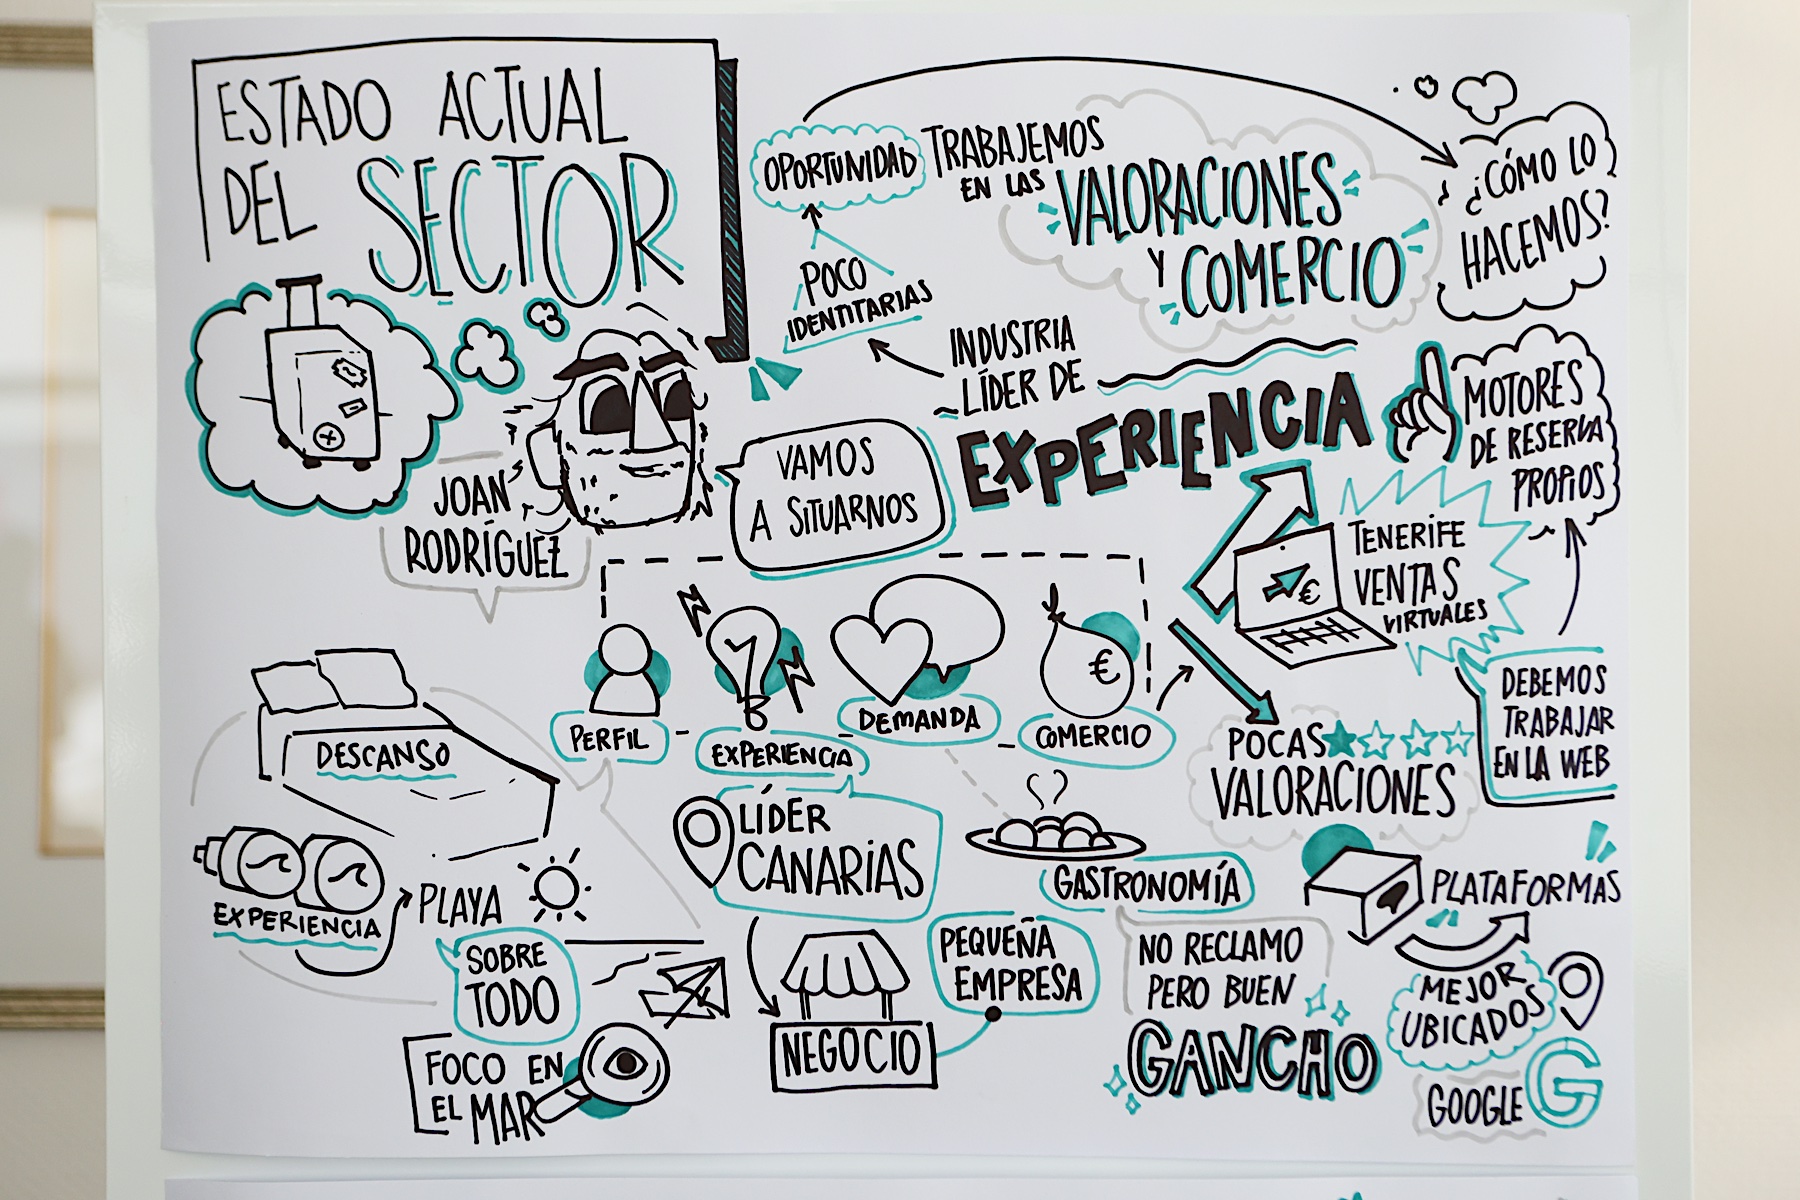 ESTADO ACTUAL
DEL SECTOR
JOAN
RODRÍGUEZ
VAMOS
A SITUARNOS
OPORTUNIDAD
TRABAJEMOS
EN LAS VALORACIONES
Y COMERCIO
¿CÓMO LO
HACEMOS?
POCO
IDENTITARIAS
INDUSTRIA
LÍDER DE
EXPERIENCIA
MOTORES
DE RESERVA
PROPIOS
TENERIFE
VENTAS
VIRTUALES
€
DEBEMOS
TRABAJAR
EN LA WEB
PERFIL
EXPERIENCIA
DEMANDA
€
COMERCIO
POCAS
VALORACIONES
DESCANSO
EXPERIENCIA
PLAYA
SOBRE
TODO
FOCO EN
EL MAR
LÍDER
CANARIAS
NEGOCIO
PEQUEÑA
EMPRESA
GASTRONOMÍA
NO RECLAMO
PERO BUEN
GANCHO
PLATAFORMAS
MEJOR
UBICADOS
GOOGLE G